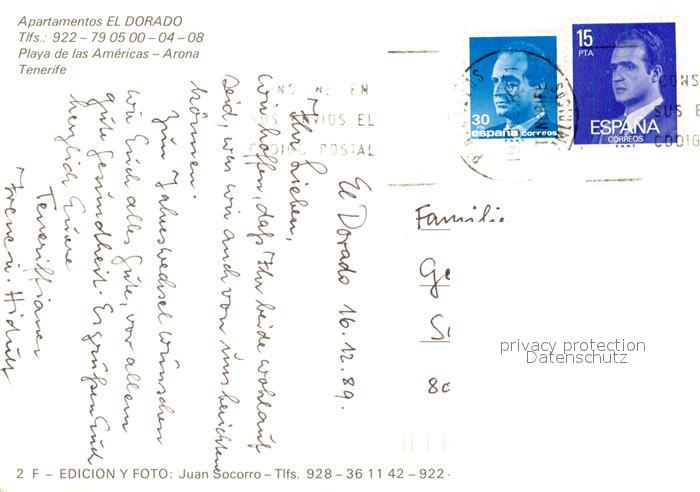 Apartamentos EL DORADO
Tlfs.: 922 – 79 05 00 – 04 – 08
Playa de las Américas – Arona
Tenerife
El Dorado 16.12.89.
Ihr Lieben,
wir hoffen, daß Ihr beide wohlauf
seid, was wir auch von uns berichten
können.
Zum Jahreswechsel wünschen
wir Euch alles Gute, vor allem
gute Gesundheit. Es grüßen Euch
herzlich Eure
Teneriffianer
Irene u.
30
españa correos
F.N.M.T.
15
PTA
ESPAÑA
CORREOS
F.N.M.T.
CONS
SUS E
CODIG
EN
SUS ENVIOS EL
CODIGO POSTAL
Familie
Ge
S
80
privacy protection
Datenschutz
2 F – EDICION Y FOTO: Juan Socorro – Tlfs. 928 – 36 11 42 – 922 -